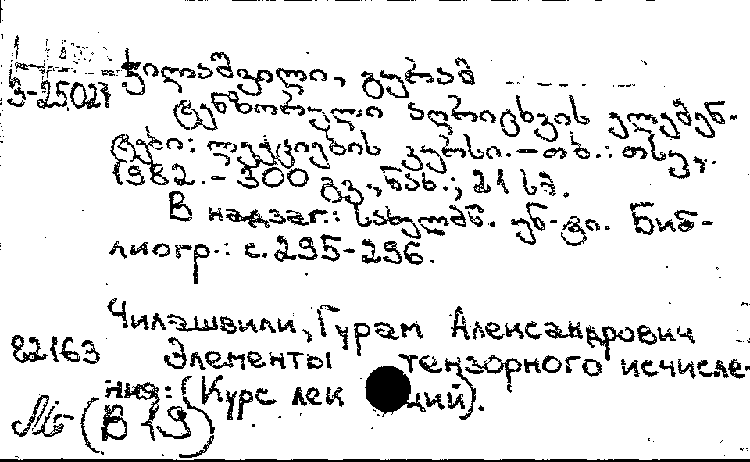 ჭილაშვილი, გურამ
3-25027
ტენზორული აღრიცხვის ელემენ-
ტები: ლექციების კურსი. – თბ.: თსუ,
1982. – 300 გვ., ნახ.; 21 სმ.
В надзаг.: სახელმწ. უნ-ტი. Биб-
лиогр.: с. 295-296.
Чилашвили, Гурам Александрович
82163 Элементы тензорного исчисле-
ния: (Курс лек ций).
(В 19)